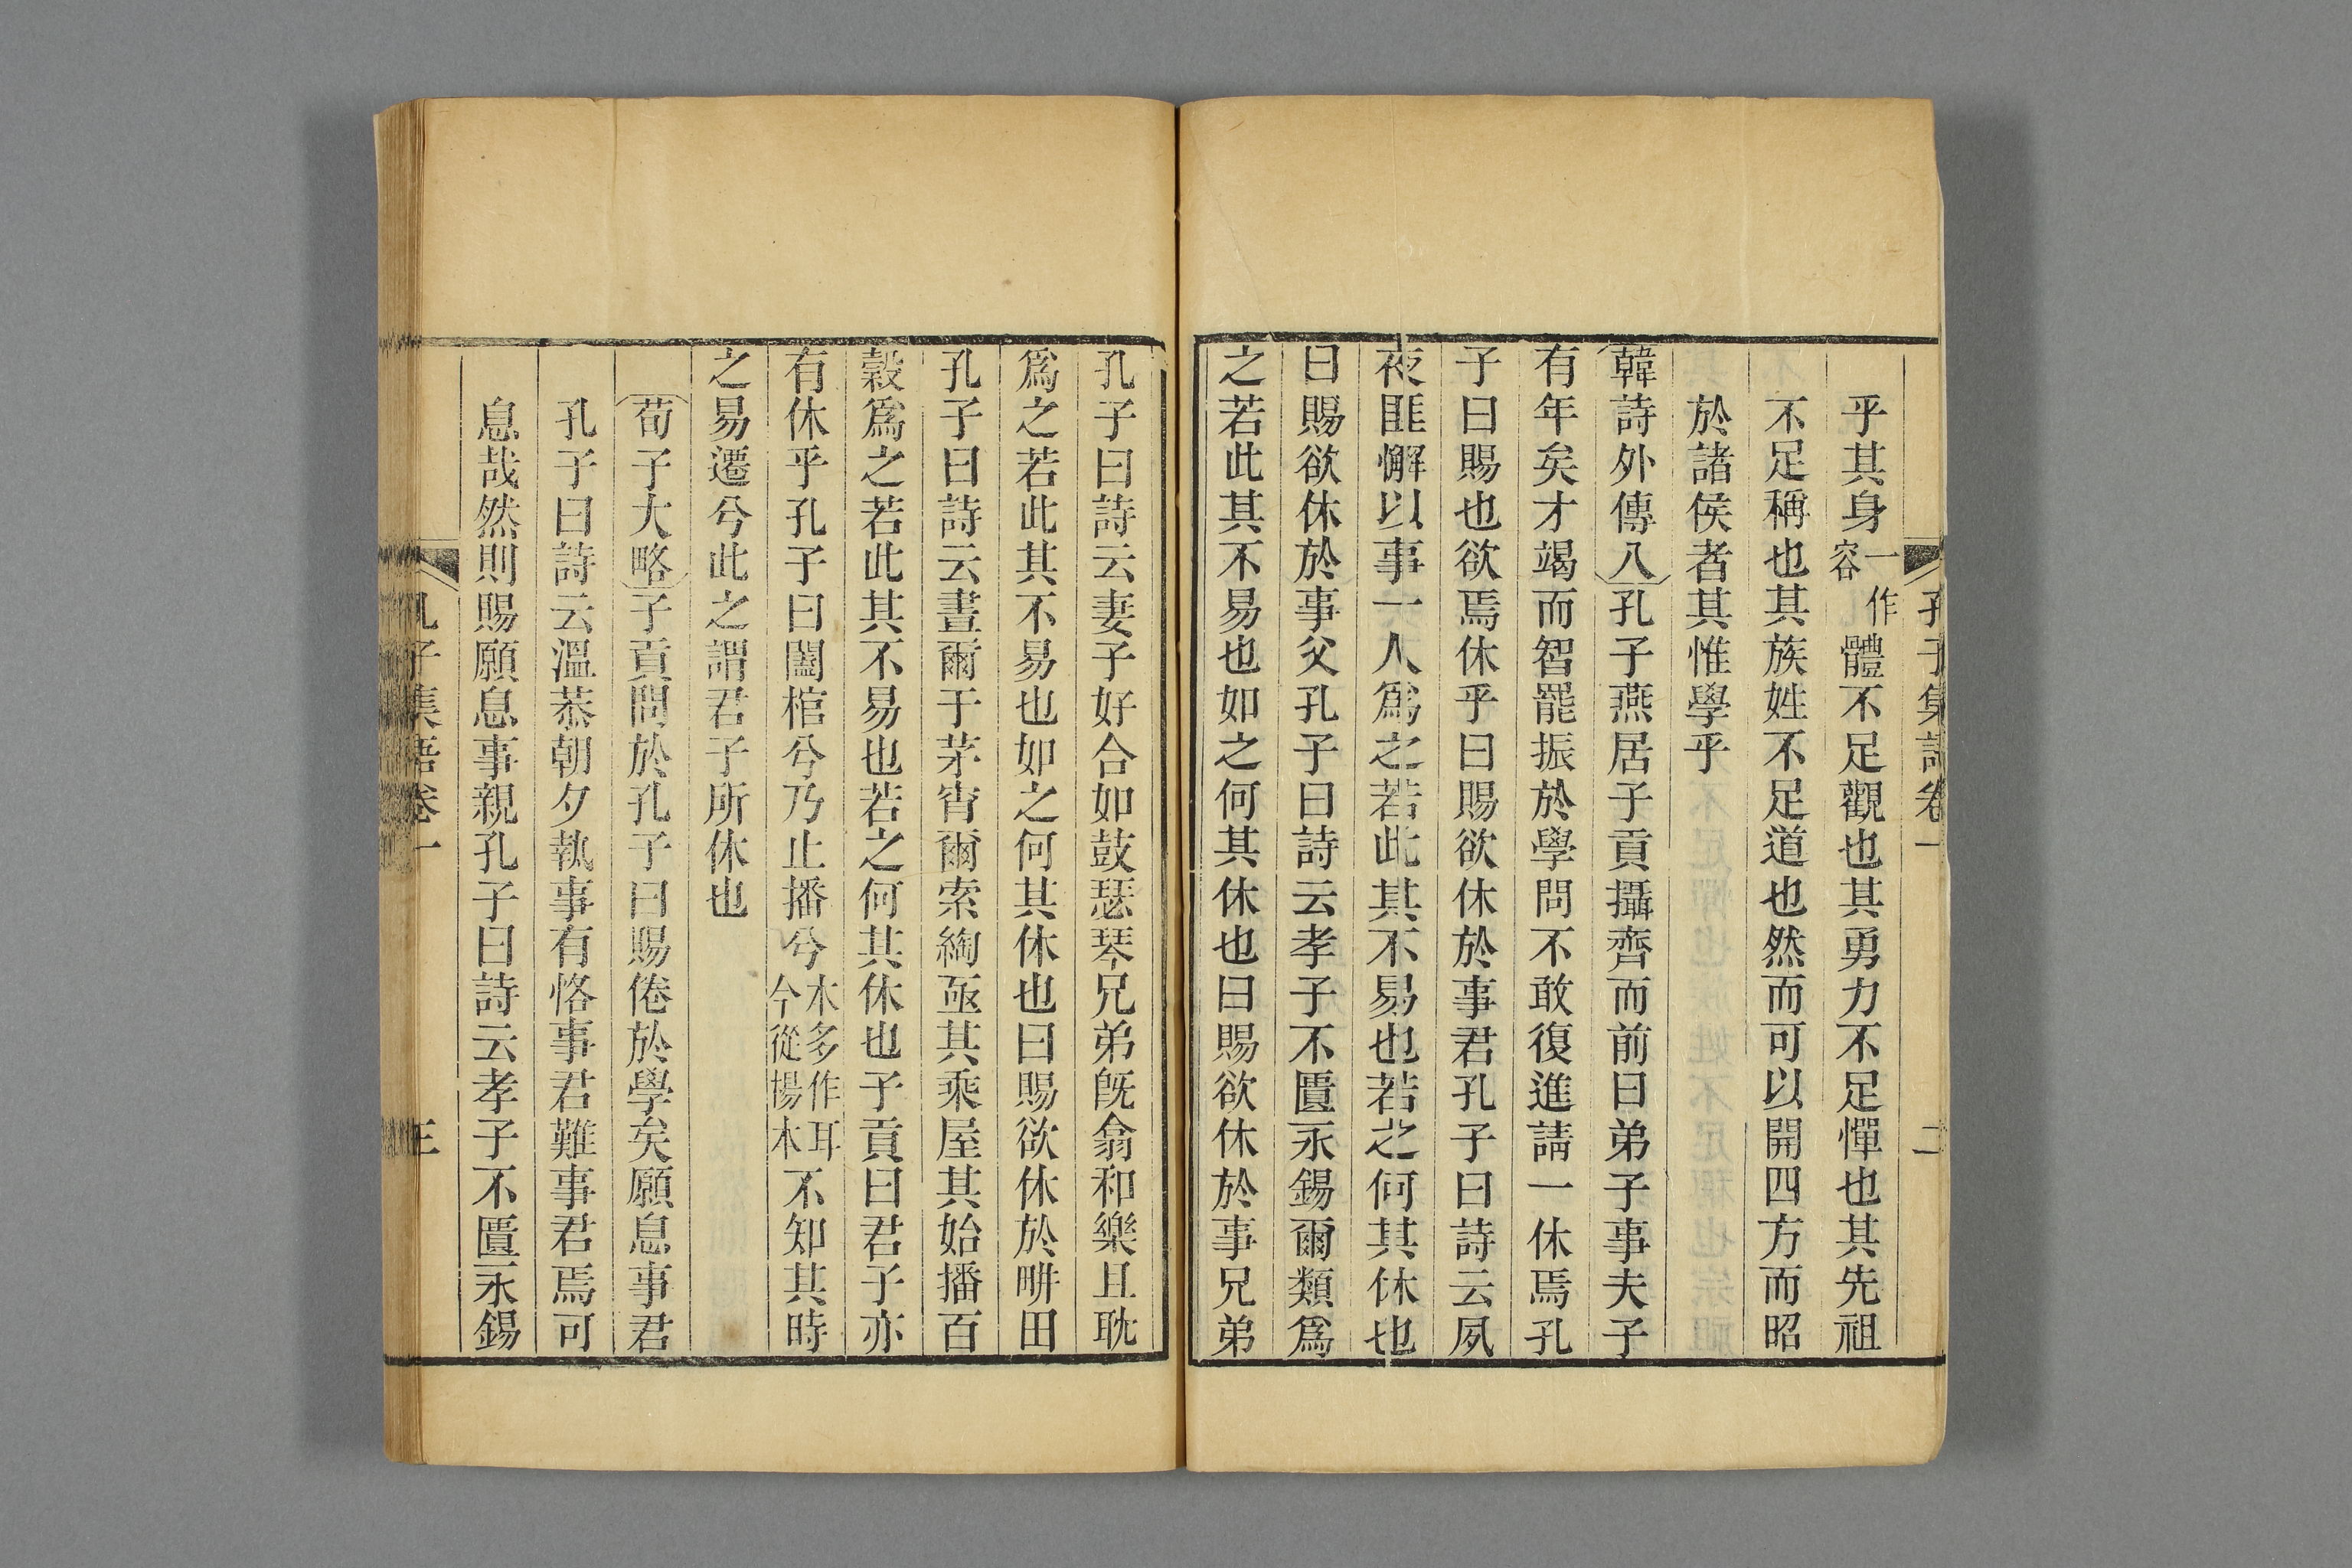 孔子集語卷一 二
乎其身一作容體不足觀也其勇力不足憚也其先祖
不足稱也其族姓不足道也然而可以開四方而昭
於諸侯者其惟學乎
韓詩外傳八孔子燕居子貢攝齊而前曰弟子事夫子
有年矣才竭而智罷振於學問不敢復進請一休焉孔
子曰賜也欲焉休乎曰賜欲休於事君孔子曰詩云夙
夜匪懈以事一人為之若此其不易也若之何其休也
曰賜欲休於事父孔子曰詩云孝子不匱永錫爾類為
之若此其不易也如之何其休也曰賜欲休於事兄弟
孔子曰詩云妻子好合如鼓瑟琴兄弟旣翕和樂且耽
為之若此其不易也如之何其休也曰賜欲休於畊田
孔子曰詩云晝爾于茅宵爾索綯亟其乘屋其始播百
穀為之若此其不易也若之何其休也子貢曰君子亦
有休乎孔子曰闔棺兮乃止播兮木多作耳今從楊本不知其時
之易遷兮此之謂君子所休也
荀子大略子貢問於孔子曰賜倦於學矣願息事君
孔子曰詩云溫恭朝夕執事有恪事君難事君焉可
息哉然則賜願息事親孔子曰詩云孝子不匱永錫
孔子集語卷一 三